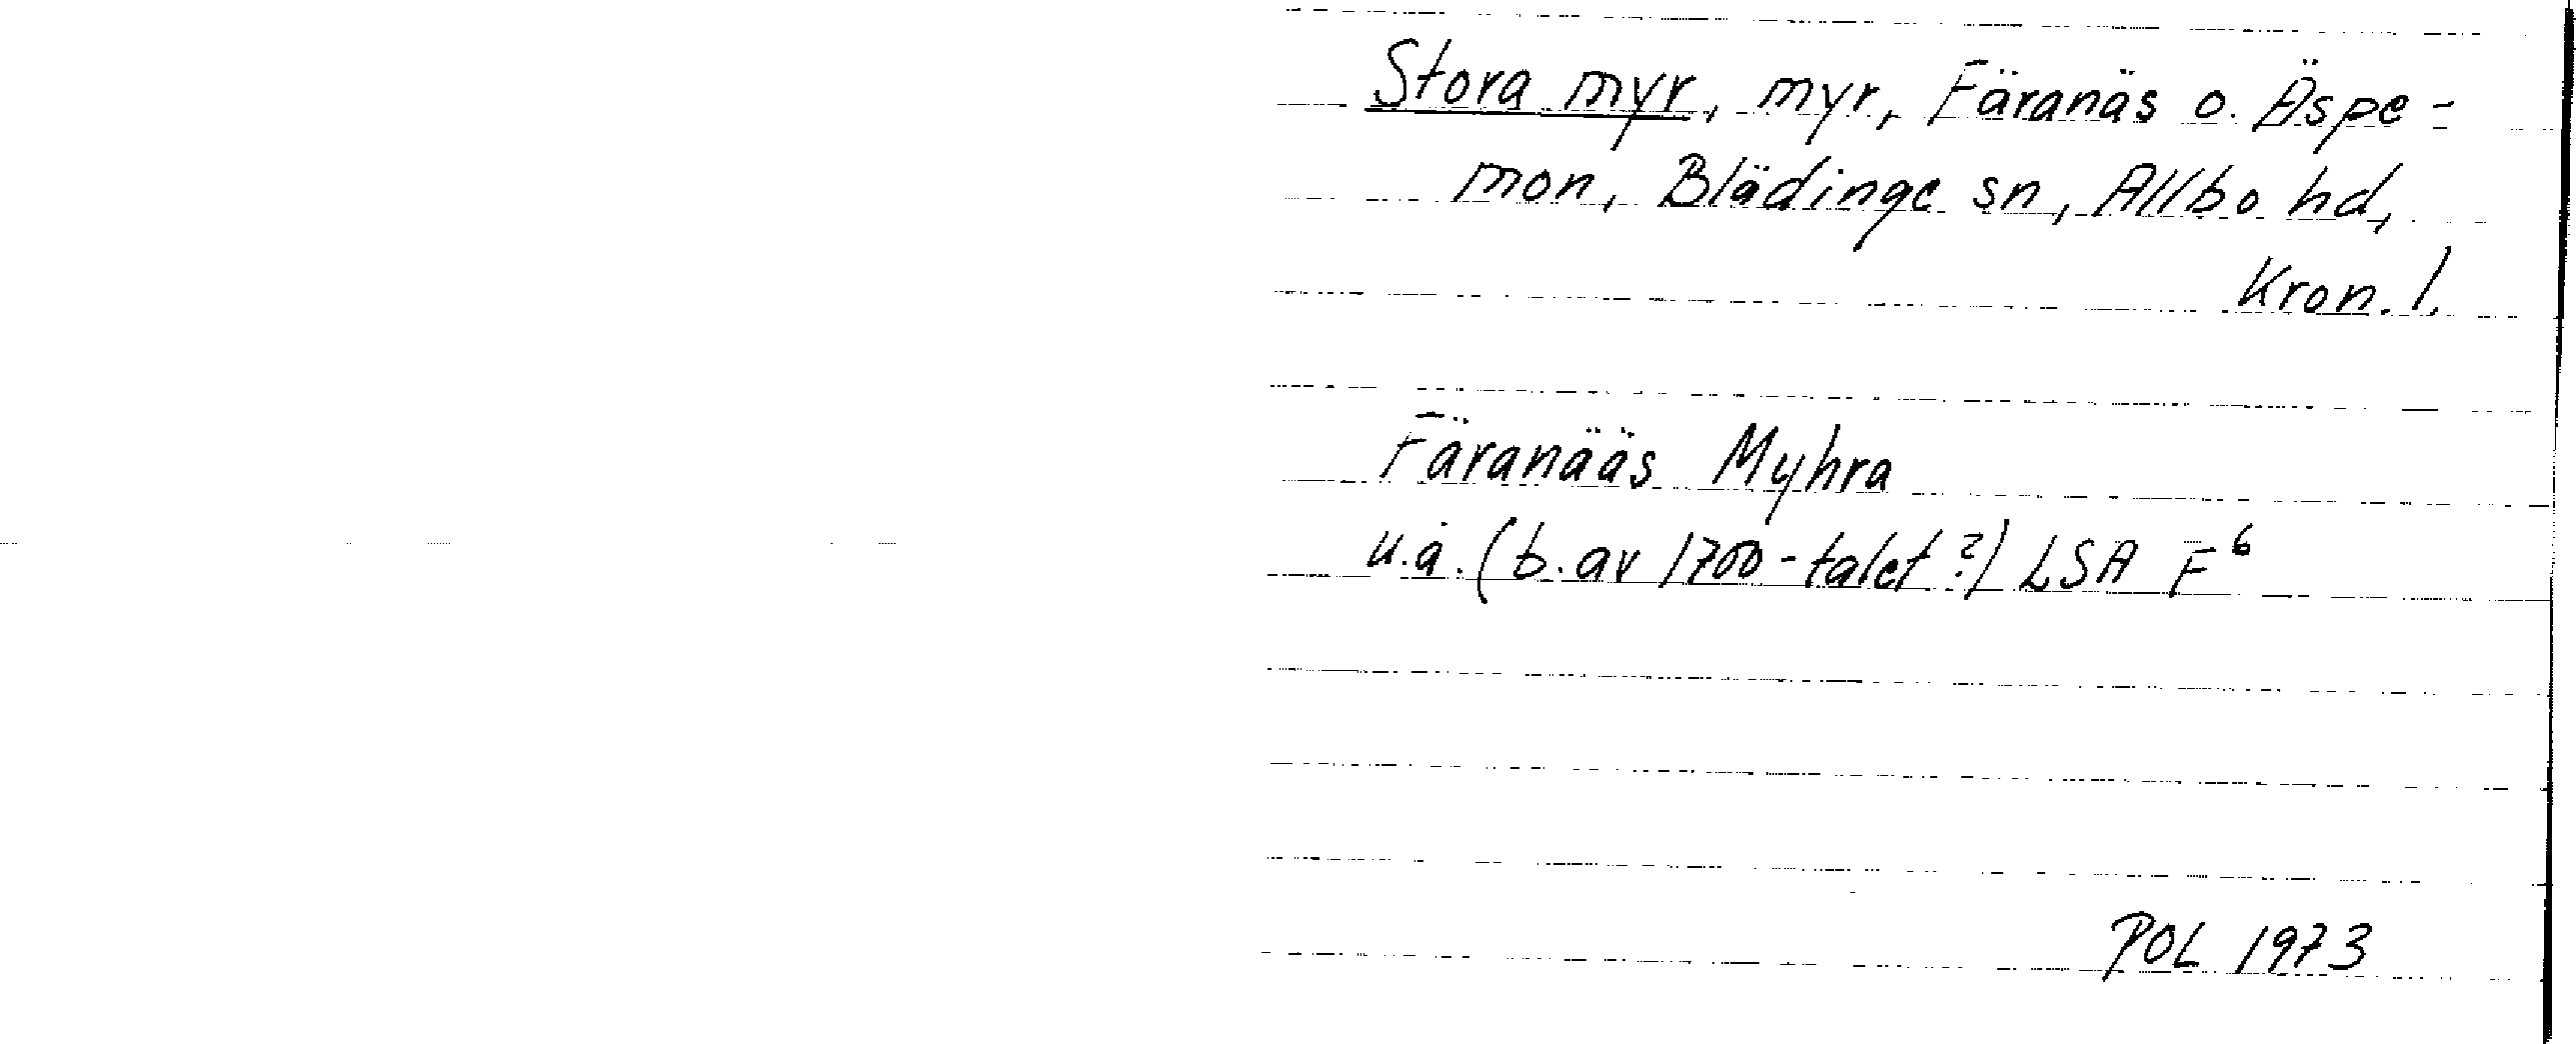 Stora myr, myr, Färanäs o. Äspe-
mon, Blädinge sn, Allbo hd,
Kron. l.
Färanääs Myhra
u.å. (b. av 1700-talet?) LSA F⁶
POL 1973